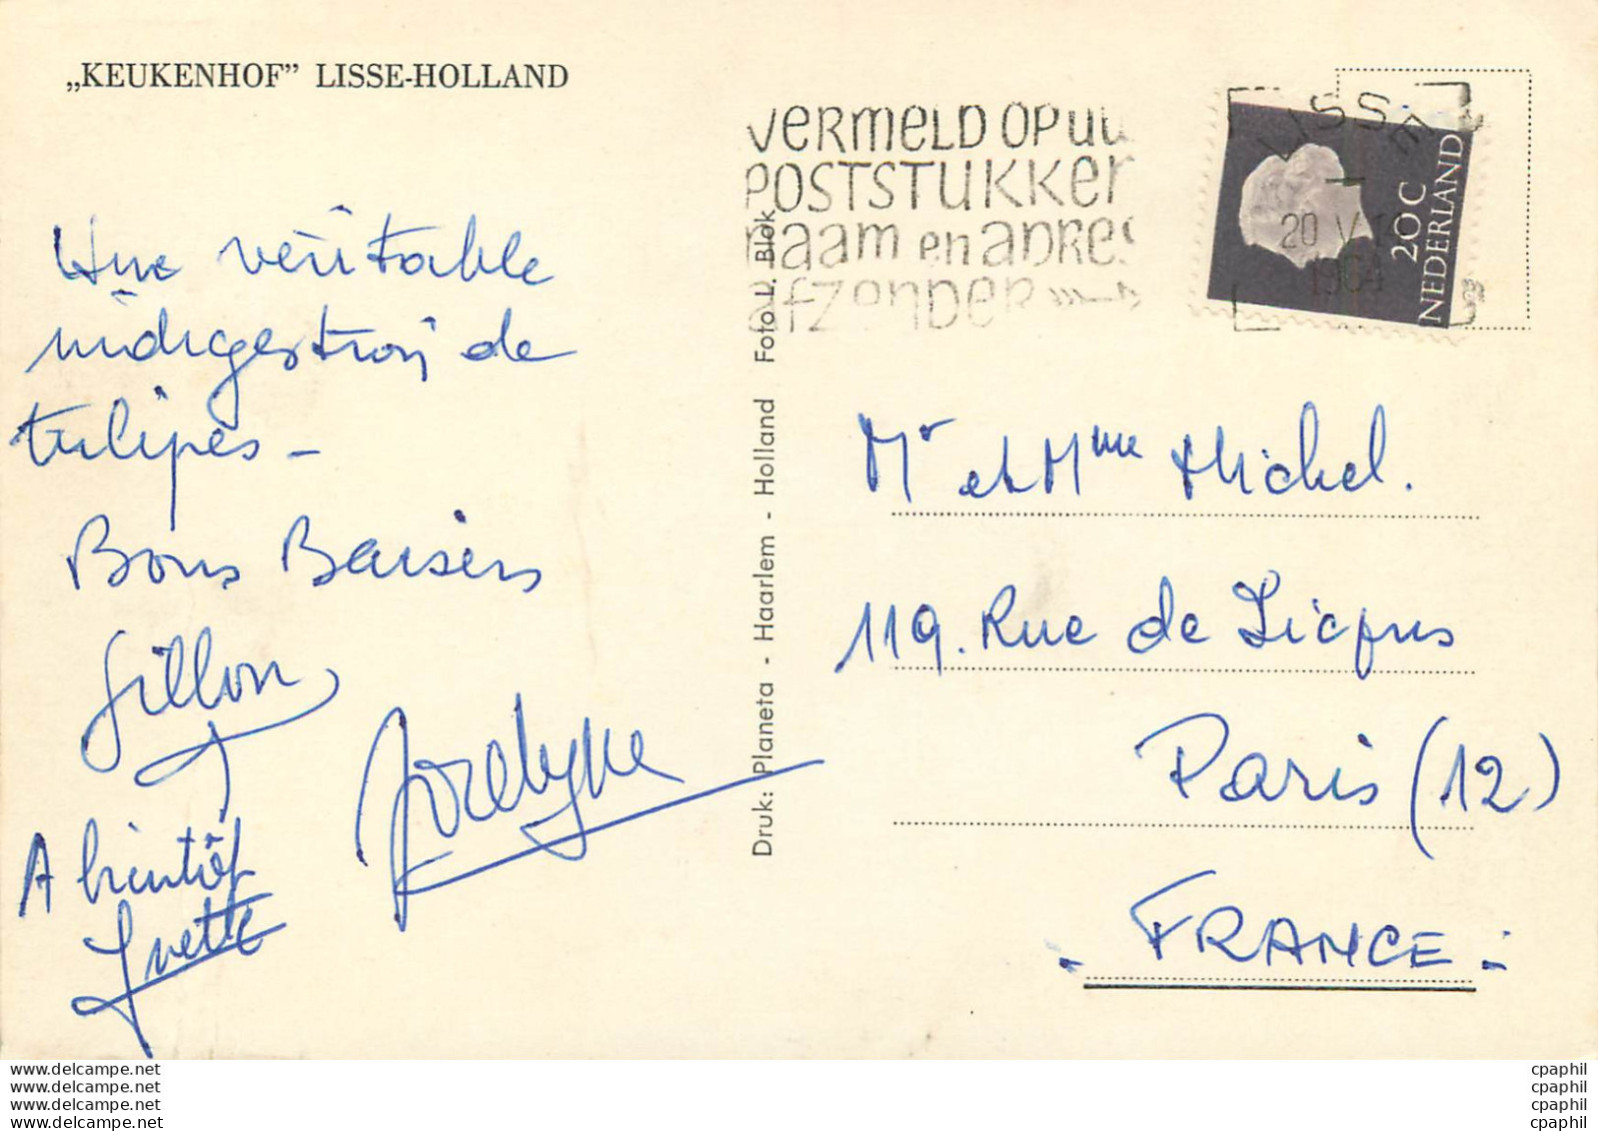 „KEUKENHOF” LISSE-HOLLAND
VERMELD OP UW
POSTSTUKKEN
NAAM EN ADRES
AFZENDER
LISSE
20 V
1964
20 C
NEDERLAND
Une véritable
indigestion de
tulipes -
Bons Baisers
Gillon
Jocelyne
A bientôt
Yvette
Druk: Planeta - Haarlem - Holland Foto D. Blok
Mr et Mme Michel.
119. Rue de Picpus
Paris (12)
FRANCE
www.delcampe.net cpaphil
www.delcampe.net cpaphil
www.delcampe.net cpaphil
www.delcampe.net cpaphil